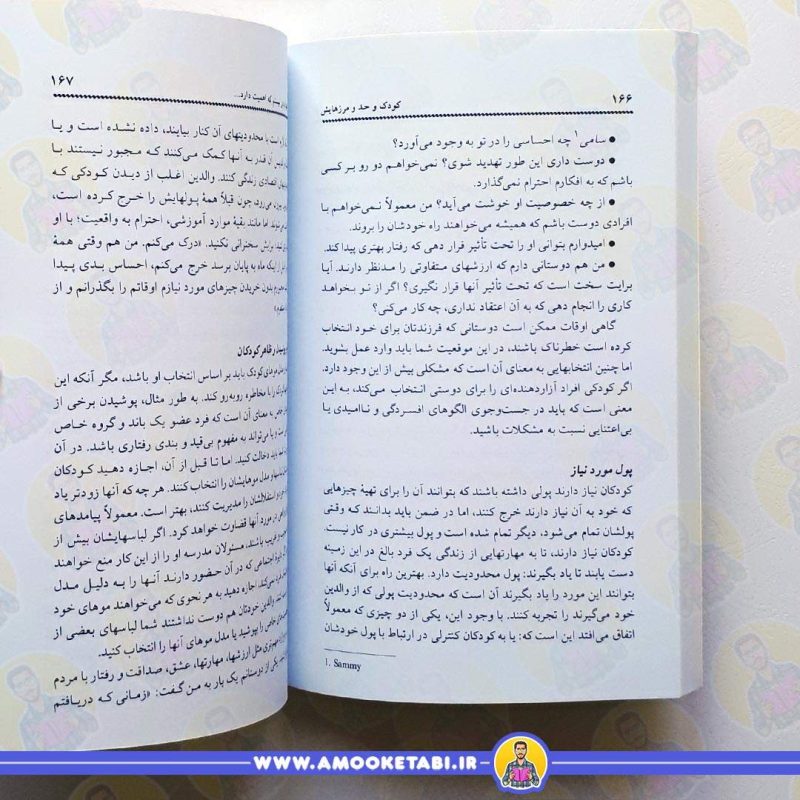 ۱۶۶
کودک و حد و مرزهایش
● سامی۱ چه احساسی را در تو به وجود می‌آورد؟
● دوست داری این طور تهدید شوی؟ نمی‌خواهم دو رو بر کسی
باشم که به افکارم احترام نمی‌گذارد.
● از چه خصوصیت او خوشت می‌آید؟ من معمولاً نمی‌خواهم با
افرادی دوست باشم که همیشه می‌خواهند راه خودشان را بروند.
● امیدوارم بتوانی او را تحت تأثیر قرار دهی که رفتار بهتری پیدا کند.
● من هم دوستانی دارم که ارزشهای متفاوتی را مدنظر دارند. آیا
برایت سخت است که تحت تأثیر آنها قرار نگیری؟ اگر از تو بخواهد
کاری را انجام دهی که به آن اعتقاد نداری، چه کار می‌کنی؟
گاهی اوقات ممکن است دوستانی که فرزندتان برای خود انتخاب
کرده است خطرناک باشند، در این موقعیت شما باید وارد عمل بشوید.
اما چنین انتخابهایی به معنای آن است که مشکلی بیش از این وجود دارد.
اگر کودکی افراد آزاردهنده‌ای را برای دوستی انتخاب می‌کند، به این
معنی است که باید در جست‌وجوی الگوهای افسردگی و ناامیدی یا
بی‌اعتنایی نسبت به مشکلات باشید.
پول مورد نیاز
کودکان نیاز دارند پولی داشته باشند که بتوانند آن را برای تهیهٔ چیزهایی
که خود به آن نیاز دارند خرج کنند، اما در ضمن باید بدانند که وقتی
پولشان تمام می‌شود، دیگر تمام شده است و پول بیشتری در کار نیست.
کودکان نیاز دارند، تا به مهارتهایی از زندگی یک فرد بالغ در این زمینه
دست یابند تا یاد بگیرند: پول محدودیت دارد. بهترین راه برای آنکه آنها
بتوانند این مورد را یاد بگیرند آن است که محدودیت پولی که از والدین
خود می‌گیرند را تجربه کنند. با وجود این، یکی از دو چیزی که معمولاً
اتفاق می‌افتد این است که: یا به کودکان کنترلی در ارتباط با پول خودشان
1. Sammy
۱۶۷
که اهمیت دارد...
با محدودیتهای آن کنار بیایند، داده نشده است و یا
آن قدر به آنها کمک می‌کنند که مجبور نیستند با
اقتصادی زندگی کنند. والدین اغلب از دیدن کودکی که
می‌رود، چون قبلاً همهٔ پولهایش را خرج کرده است،
اما مانند بقیهٔ موارد آموزشی، احترام به واقعیت؛ با او
برایش سخنرانی نکنید. «درک می‌کنم. من هم وقتی همهٔ
از اینکه ماه به پایان برسد خرج می‌کنم، احساس بدی پیدا
بدون خریدن چیزهای مورد نیازم اوقاتم را بگذرانم و از
ظاهر کودکان
موهای کودک باید بر اساس انتخاب او باشد، مگر آنکه این
را با مخاطره روبه‌رو کند. به طور مثال، پوشیدن برخی از
به معنای آن است که فرد عضو یک باند و گروه خاص
یا می‌تواند به مفهوم بی‌قید و بندی رفتاری باشد. در آن
باید دخالت کنید. اما تا قبل از آن، اجازه دهید کودکان
و مدل موهایشان را انتخاب کنند. هر چه که آنها زودتر یاد
استقلالشان را مدیریت کنند، بهتر است. معمولاً پیامدهای
در مورد آنها قضاوت خواهد کرد. اگر لباسهایشان بیش از
باشد، مسئولان مدرسه او را از این کار منع خواهند
اجتماعی که در آن حضور دارند آنها را به دلیل مدل
اجازه دهید به هر نحوی که می‌خواهند موهای خود
والدین خودتان هم دوست نداشتند شما لباسهای بعضی از
را بپوشید یا مدل موی آنها را انتخاب کنید.
مثل ارزشها، مهارتها، عشق، صداقت و رفتار با مردم
یکی از دوستانم یک بار به من گفت: «زمانی که دریافتم
WWW.AMOOKETABI.IR